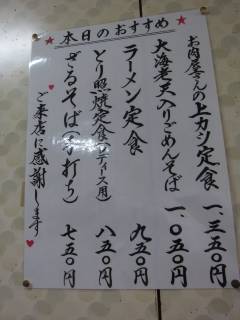 ★本日のおすすめ★
お肉屋さんの上カツ定食 一、三五〇円
大海老天入りごめんそば 一、〇五〇円
ラーメン定食 九五〇円
とり照焼定食(レディース用) 八五〇円
ざるそば(手打ち) 七五〇円
ご来店に感謝します♥